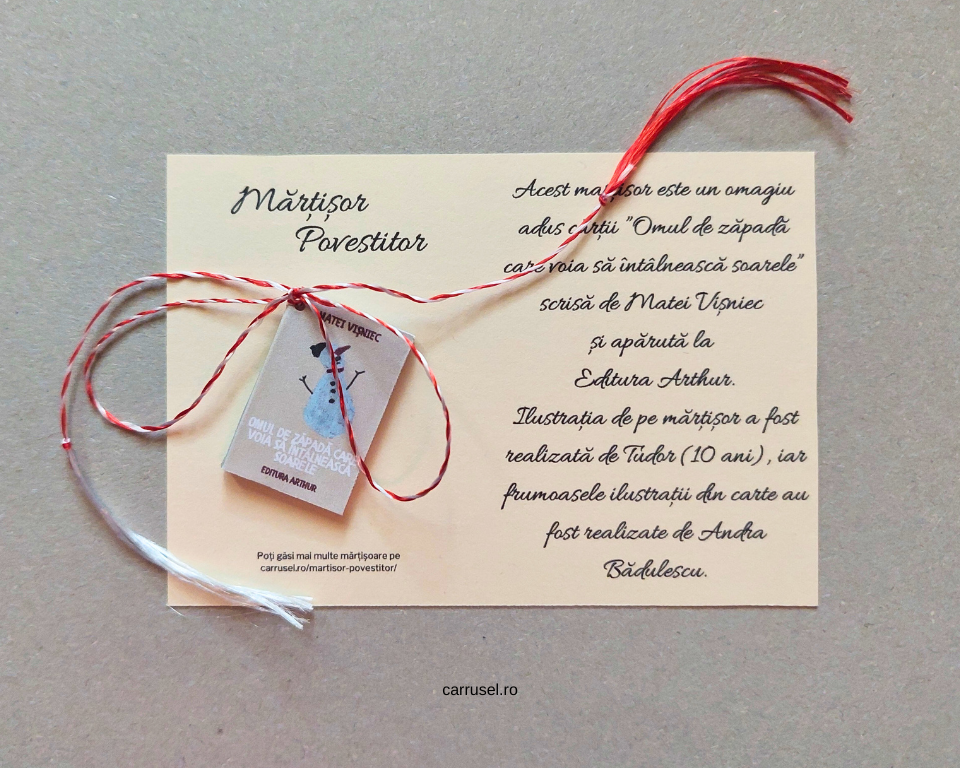 Mărțișor
Povestitor
MATEI VIȘNIEC
OMUL DE ZĂPADĂ CARE
VOIA SĂ ÎNTÂLNEASCĂ
SOARELE
EDITURA ARTHUR
Poți găsi mai multe mărțișoare pe
carrusel.ro/martisor-povestitor/
Acest marțisor este un omagiu
adus cărții "Omul de zăpadă
care voia să întâlnească soarele"
scrisă de Matei Vișniec
și apărută la
Editura Arthur.
Ilustrația de pe mărțișor a fost
realizată de Tudor (10 ani), iar
frumoasele ilustrații din carte au
fost realizate de Andra
Bădulescu.
carrusel.ro